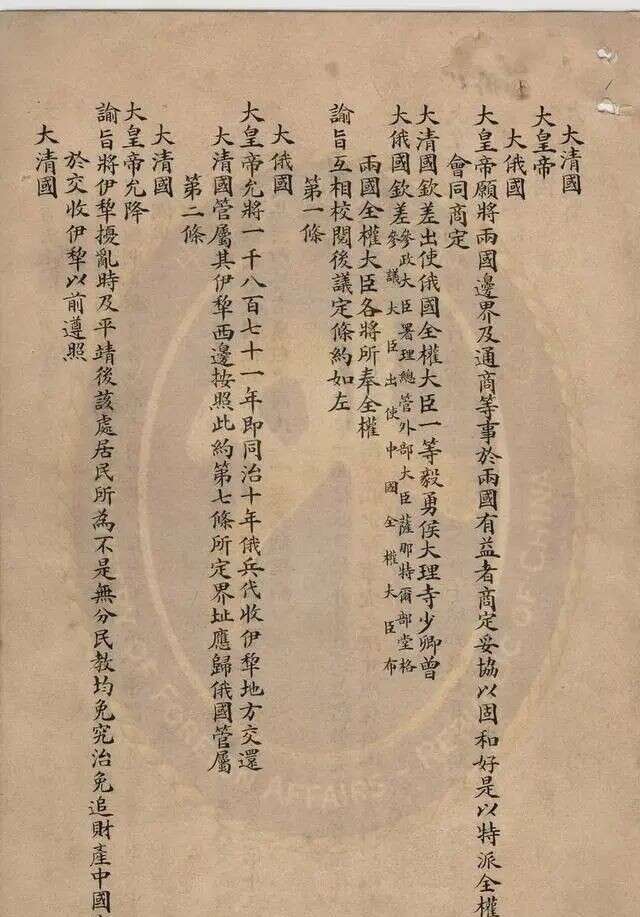 大清國
大皇帝
大俄國
大皇帝願將兩國邊界及通商等事於兩國有益者商定妥協以固和好是以特派全權
會同商定
大清國欽差出使俄國全權大臣一等毅勇侯大理寺少卿曾
大俄國欽差參政大臣署理總管外部大臣薩那特爾部堂格
參議大臣出使中國全權大臣布
兩國全權大臣各將所奉全權
諭旨互相校閱後議定條約如左
第一條
大俄國
大皇帝允將一千八百七十一年即同治十年俄兵代收伊犂地方交還
大清國管屬其伊犂西邊按照此約第七條所定界址應歸俄國管屬
第二條
大清國
大皇帝允降
諭旨將伊犂擾亂時及平靖後該處居民所為不是無分民教均免究治免追財產中國
於交收伊犂以前遵照
大清國